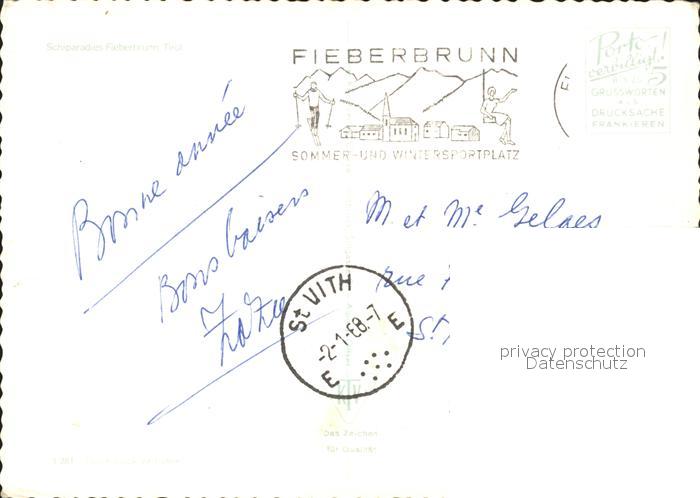 Schiparadies Fieberbrunn, Tirol
FIEBERBRUNN
SOMMER-UND WINTERSPORTPLATZ
Porto
5
GRUSSWORTEN
ALS
DRUCKSACHE
FRANKIEREN
Bonne année
Bons baisers
Zaza
M. et Me Gelaes
rue
St.
St VITH
-2-1-68.-7
E E
KTV
Das Zeichen
für Qualität
privacy protection
Datenschutz